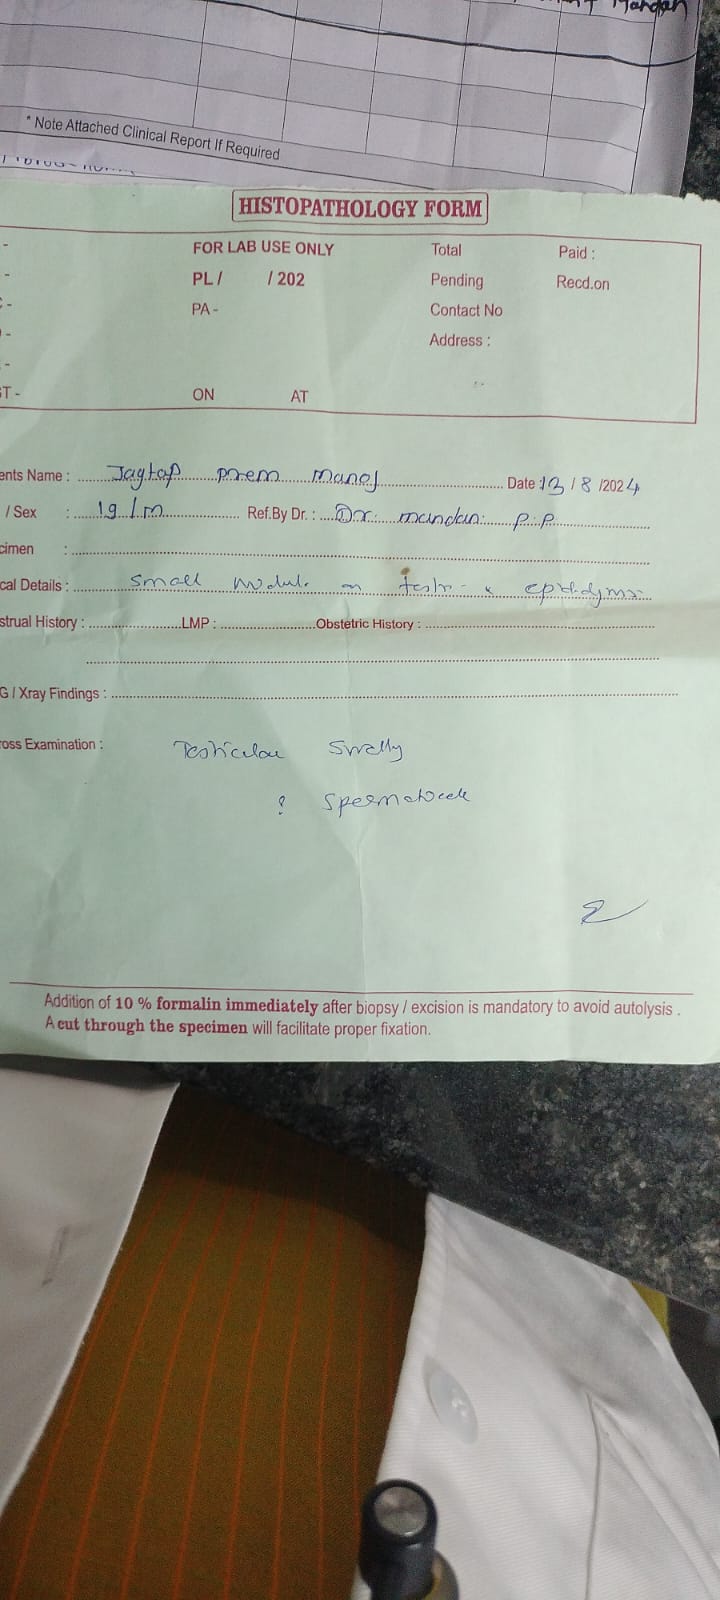 Mandan
* Note Attached Clinical Report If Required
HISTOPATHOLOGY FORM
FOR LAB USE ONLY Total Paid :
PL / / 202 Pending Recd.on
PA - Contact No
Address :
ST - ON AT
ents Name : Jagtap prem manoj Date 13 / 8 /2024
/ Sex : 19 / m Ref.By Dr. : Dr. mandan. P.P
cimen :
cal Details : small nodule on testis & epididymis
strual History : LMP : Obstetric History :
G / Xray Findings :
ross Examination : Testicular Swelly
? Spermatocele
Addition of 10 % formalin immediately after biopsy / excision is mandatory to avoid autolysis .
A cut through the specimen will facilitate proper fixation.